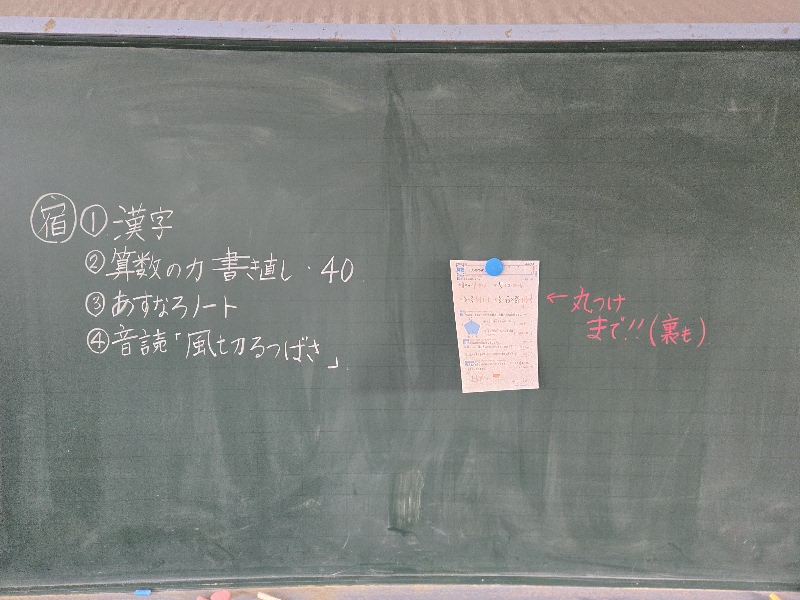 宿 ① 漢字
② 算数の力 書き直し・40
③ あすなろノート
④ 音読「風切るつばさ」
← 丸つけ
まで!!(裏も)